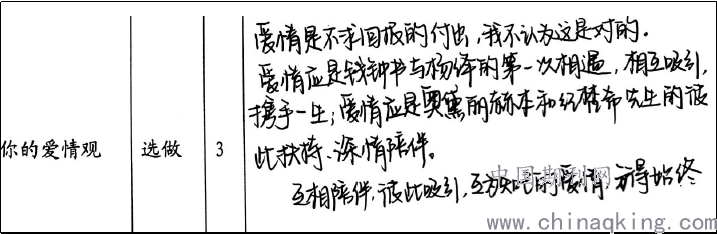 爱情是不求回报的付出,我不认为这是对的。
爱情应是钱钟书与杨绛的第一次相遇,相互吸引,
携手一生;爱情应是奥黛丽赫本和纪梵希先生的彼
你的爱情观 选做 3 此扶持、深情陪伴。
中国期刊网
互相陪伴,彼此吸引,互为的爱情,方得始终
www.chinaqking.com